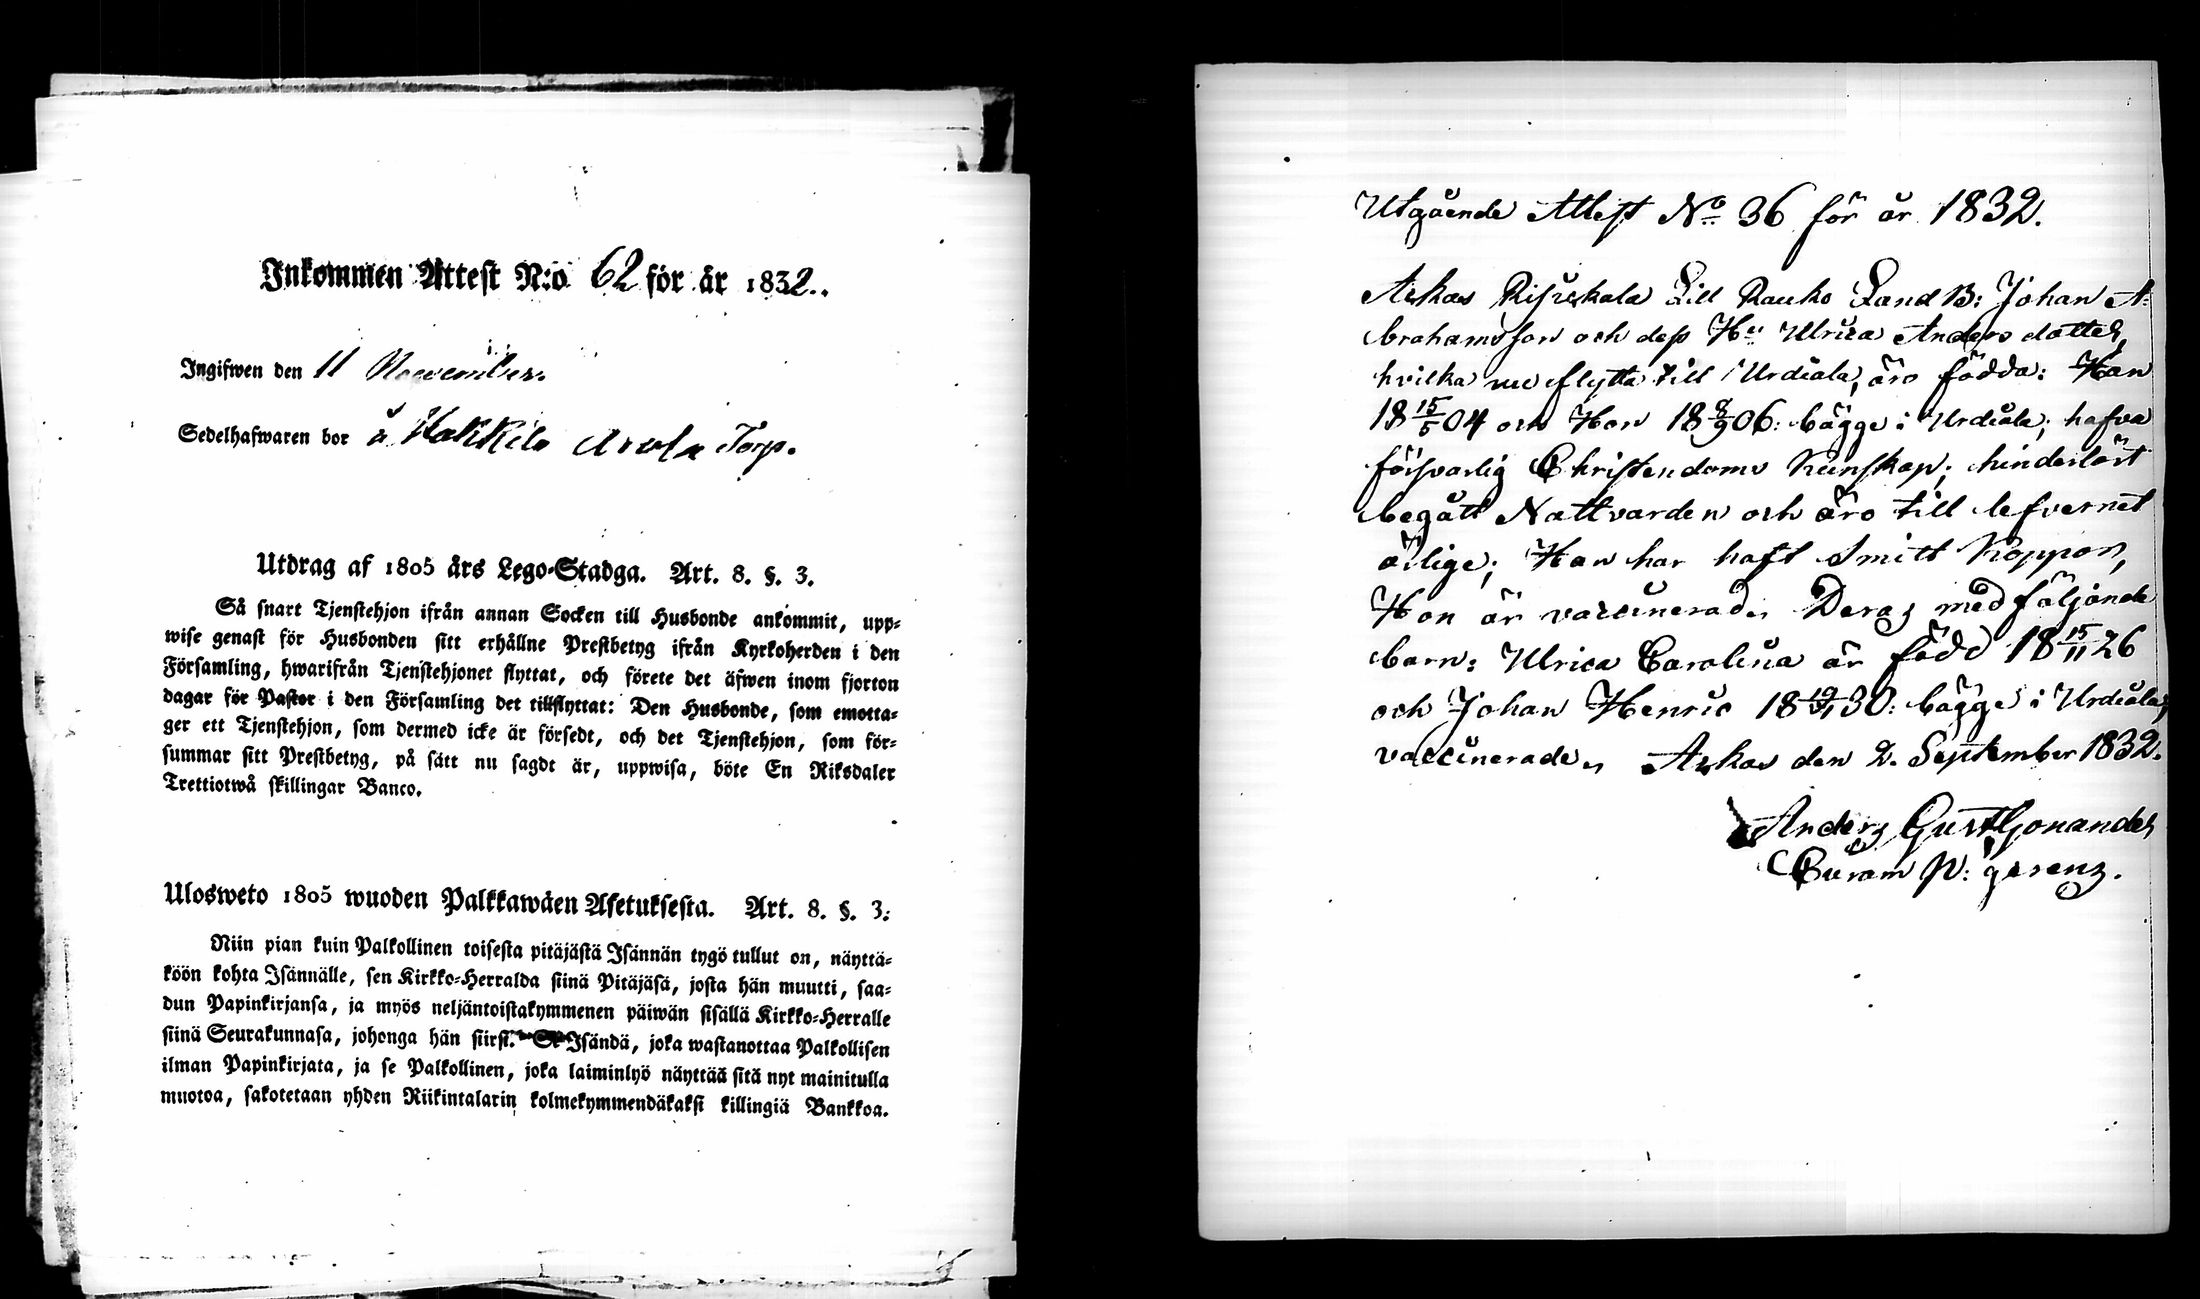 Inkommen Attest N:o 62 för år 1832..
Ingifwen den 11 November.
Sedelhafwaren bor å Hakkila Arola Torp.
Utdrag af 1805 års Lego-Stadga. Art. 8. §. 3.
Så snart Tjenstehjon ifrån annan Socken till Husbonde ankommit, upp-
wise genast för Husbonden sitt erhållne Prestbetyg ifrån Kyrkoherden i den
Församling, hwarifrån Tjenstehjonet flyttat, och förete det äfwen inom fjorton
dagar för Pastor i den Församling det tillflyttat: Den Husbonde, som emotta-
ger ett Tjenstehjon, som dermed icke är försedt, och det Tjenstehjon, som för-
summar sitt Prestbetyg, på sätt nu sagdt är, uppwisa, böte En Riksdaler
Trettiotwå skillingar Banco.
Ulosweto 1805 wuoden Palkkawäen Asetuksesta. Art. 8. §. 3:
Niin pian kuin Palkollinen toisesta pitäjästä Isännän tygö tullut on, näyttä-
köön kohta Isännälle, sen Kirkko-Herralda siinä Pitäjäsä, josta hän muutti, saa-
dun Papinkirjansa, ja myös neljäntoistakymmenen päiwän sisällä Kirkko-Herralle
siinä Seurakunnasa, johonga hän siirsi. Se Isändä, joka wastanottaa Palkollisen
ilman Papinkirjata, ja se Palkollinen, joka laiminlyö näyttää sitä nyt mainitulla
muotoa, sakotetaan yhden Riikintalarin kolmekymmendäkaksi killingiä Bankkoa.
Utgående Attest No 36 för år 1832.
Arkas Till Land B: Johan A:
brahamsson och dess Hu Ulrica Anders dotter,
hvilka nu flytta till Urdiala, äro födda: Han
18 15/5 04 och Hon 18 8/9 06: bägge i Urdiala; hafva
försvarlig Christendoms Kunskap; hinderlöst
begått Nattvarden och äro till lefvernet
ärlige; Han har haft Smitt Koppor,
Hon är vaccinerad. Deras medföljande
barn: Ulrica Carolina är född 18 15/11 26
och Johan Henric 18 30: bägge i Urdiala;
vaccinerade, Arkas den 2. September 1832.
Anders Gust
Curam p: gerens.